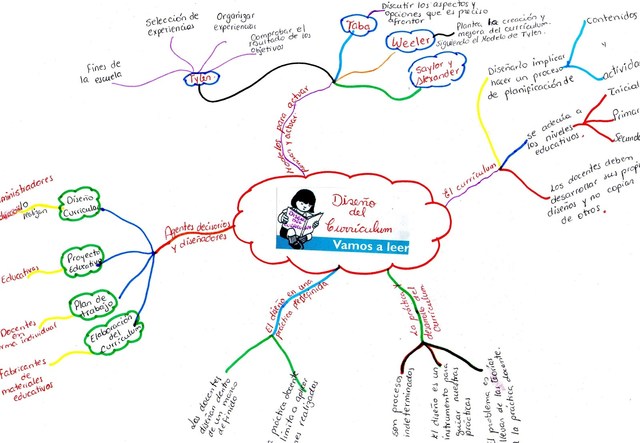 Selección de
experiencias
Organizar
experiencias
Comprobar el
resultado de los
objetivos
Fines de
la escuela
Tyler
Taba
Discutir los aspectos y
opciones que es preciso
afrontar
Weeler
Plantea, la creación y
mejora del currículum.
Siguiendo el Modelo de Tyler.
Saylor y
Alexander
Modelos para actuar
pensar y actuar
El currículum
Diseñarlo implica
hacer un proceso
de planificación de
contenidos
y
activida
se adecúa a
los niveles
educativos.
Inicial
Primar
Secund
Los docentes deben
desarrollar sus propi
diseños y no copiar
de otros.
Diseño
del
Currículum
Vamos a leer
Agentes decisorios
y diseñadores
Diseño
Curricular
ministradores
Proyecto
Educativo
Educativas
Plan de
trabajo
Docentes
en
rma individual
Elaboración
del
Currículum
Fabricantes
de
materiales
educativos
El diseño en una
práctica predefinida
Los docentes
diseñan dentro
de un marco
definido
práctica docente
limita o apoya
es realizados
La práctica y
desarrollo del
Currículum
son procesos
indeterminados
El diseño es un
instrumento para
guiar nuestras
prácticas
El problema es
llevan de las teorías
a la práctica docente.